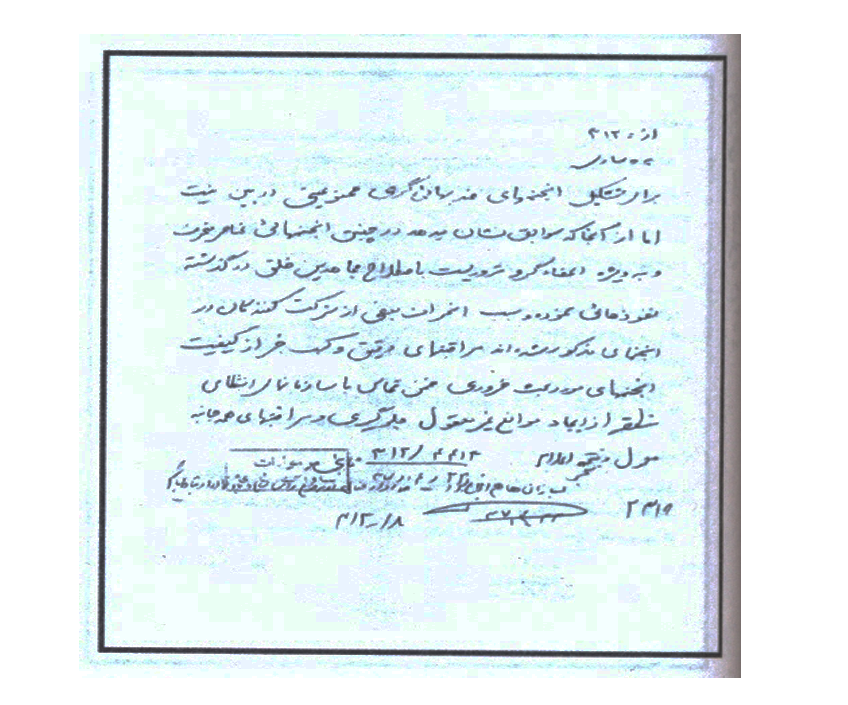 از : ۳۱۲
به ساری
برای تشکیل انجمنهای ضد بهائی گری ممنوعیتی در بین نیست
اما از آنجا که سوابق نشان میدهد در چنین انجمنهائی عناصر مخرب
و به ویژه اعضاء گروه تروریست باصطلاح مجاهدین خلق در گذشته
نفوذهائی نموده و سبب انحراف بعضی از شرکت کنندگان در
انجمنهای مذکور شده اند مراقبتهای دقیق و کسب خبر از کیفیت
انجمنهای موردبحث ضروری ضمن تماس با سازمانهای انتظامی
منطقه از ایجاد موانع غیر معقول جلوگیری و مراقبتهای همه جانبه
معمول و نتیجه اعلام ۳۱۲/۴۴۱۳
۲۳۱۹
۳۱۲-/۸